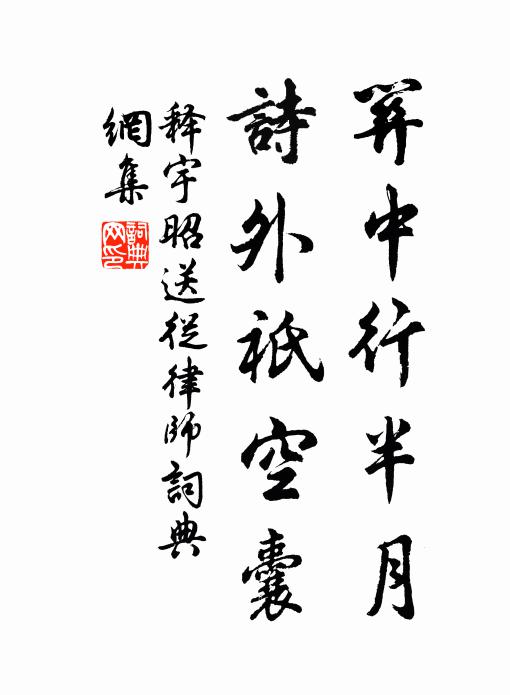 中行半月
詩外祇空囊
释宇昭送從律師詞典
網集
詞典
网印